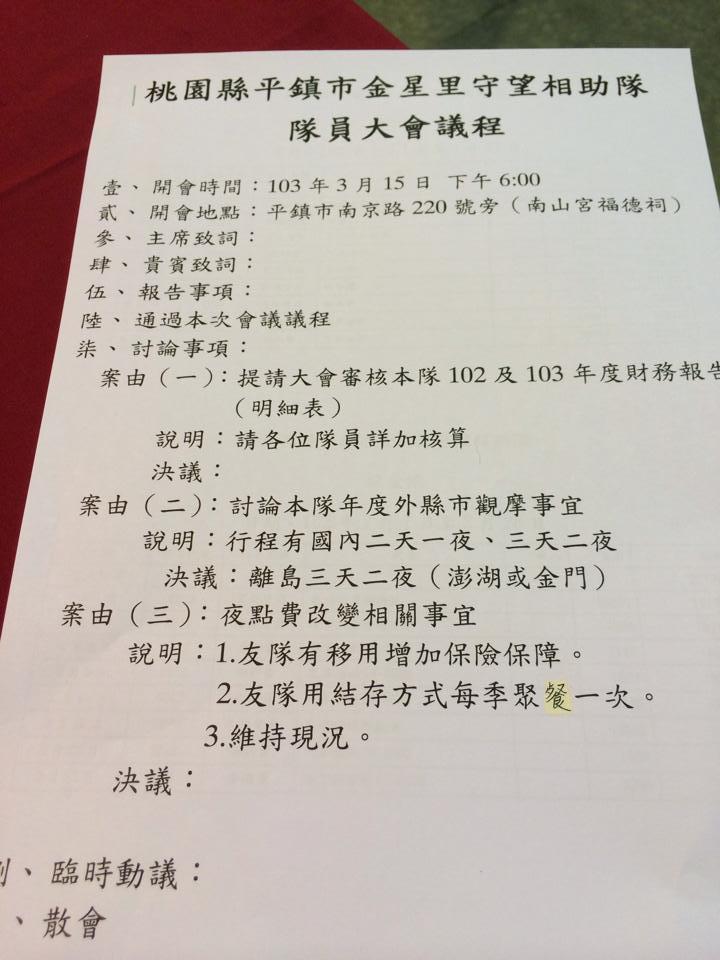 桃園縣平鎮市金星里守望相助隊
隊員大會議程
壹、開會時間：103 年 3 月 15 日 下午 6:00
貳、開會地點：平鎮市南京路 220 號旁（南山宮福德祠）
參、主席致詞：
肆、貴賓致詞：
伍、報告事項：
陸、通過本次會議議程
柒、討論事項：
案由（一）：提請大會審核本隊 102 及 103 年度財務報告
（明細表）
說明：請各位隊員詳加核算
決議：
案由（二）：討論本隊年度外縣市觀摩事宜
說明：行程有國內二天一夜、三天二夜
決議：離島三天二夜（澎湖或金門）
案由（三）：夜點費改變相關事宜
說明：1.友隊有移用增加保險保障。
2.友隊用結存方式每季聚餐一次。
3.維持現況。
決議：
、臨時動議：
、散會